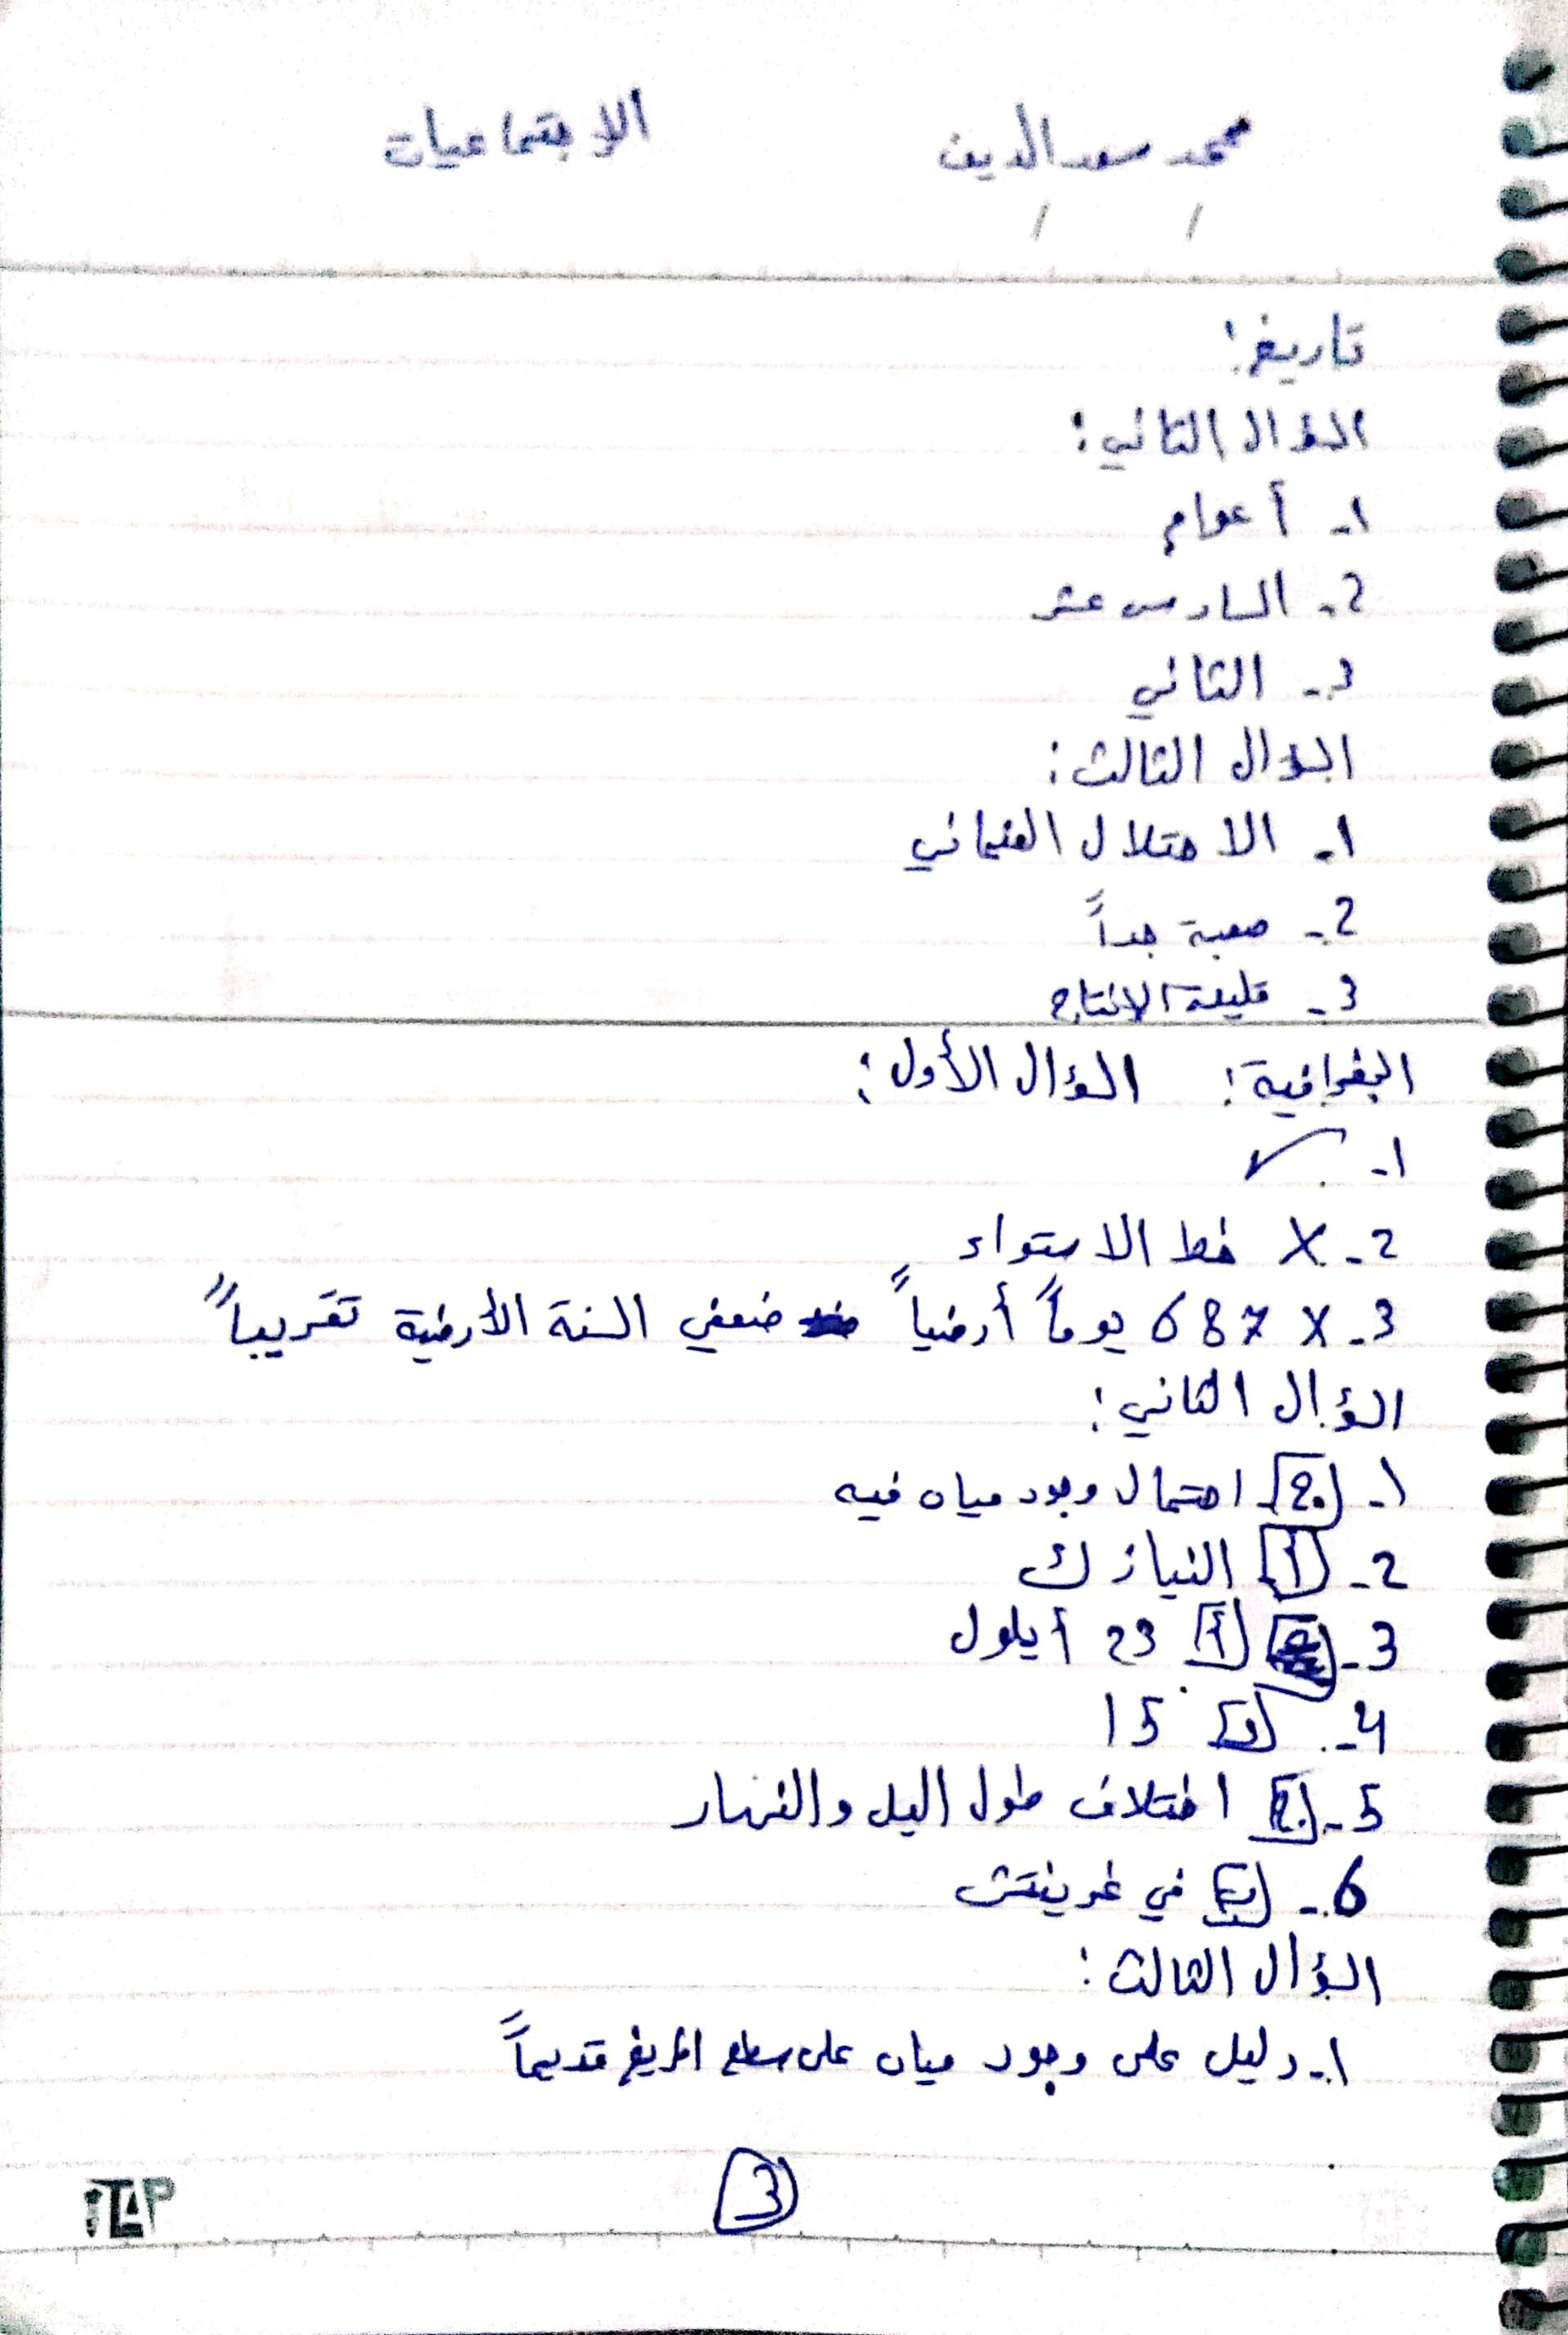 محمد سعد الدين الاجتماعيات
تاريخ:
السؤال الثاني:
1- أعوام
2- السادس عشر
3- الثاني
السؤال الثالث:
1- الاحتلال العثماني
2- صعبة جداً
3- قليلة الإنتاج
الجغرافية: السؤال الأول:
1- ✓
2- X خط الاستواء
3- X 687 يوماً أرضياً ضعفي السنة الأرضية تقريباً
السؤال الثاني:
1- ج احتمال وجود مياه فيه
2- أ النيازك
3- أ 23 أيلول
4- 15
5- ج اختلاف طول اليل والنهار
6- ب في غرينتش
السؤال الثالث:
1- دليل على وجود مياه على سطح المريخ قديماً
3
TAP